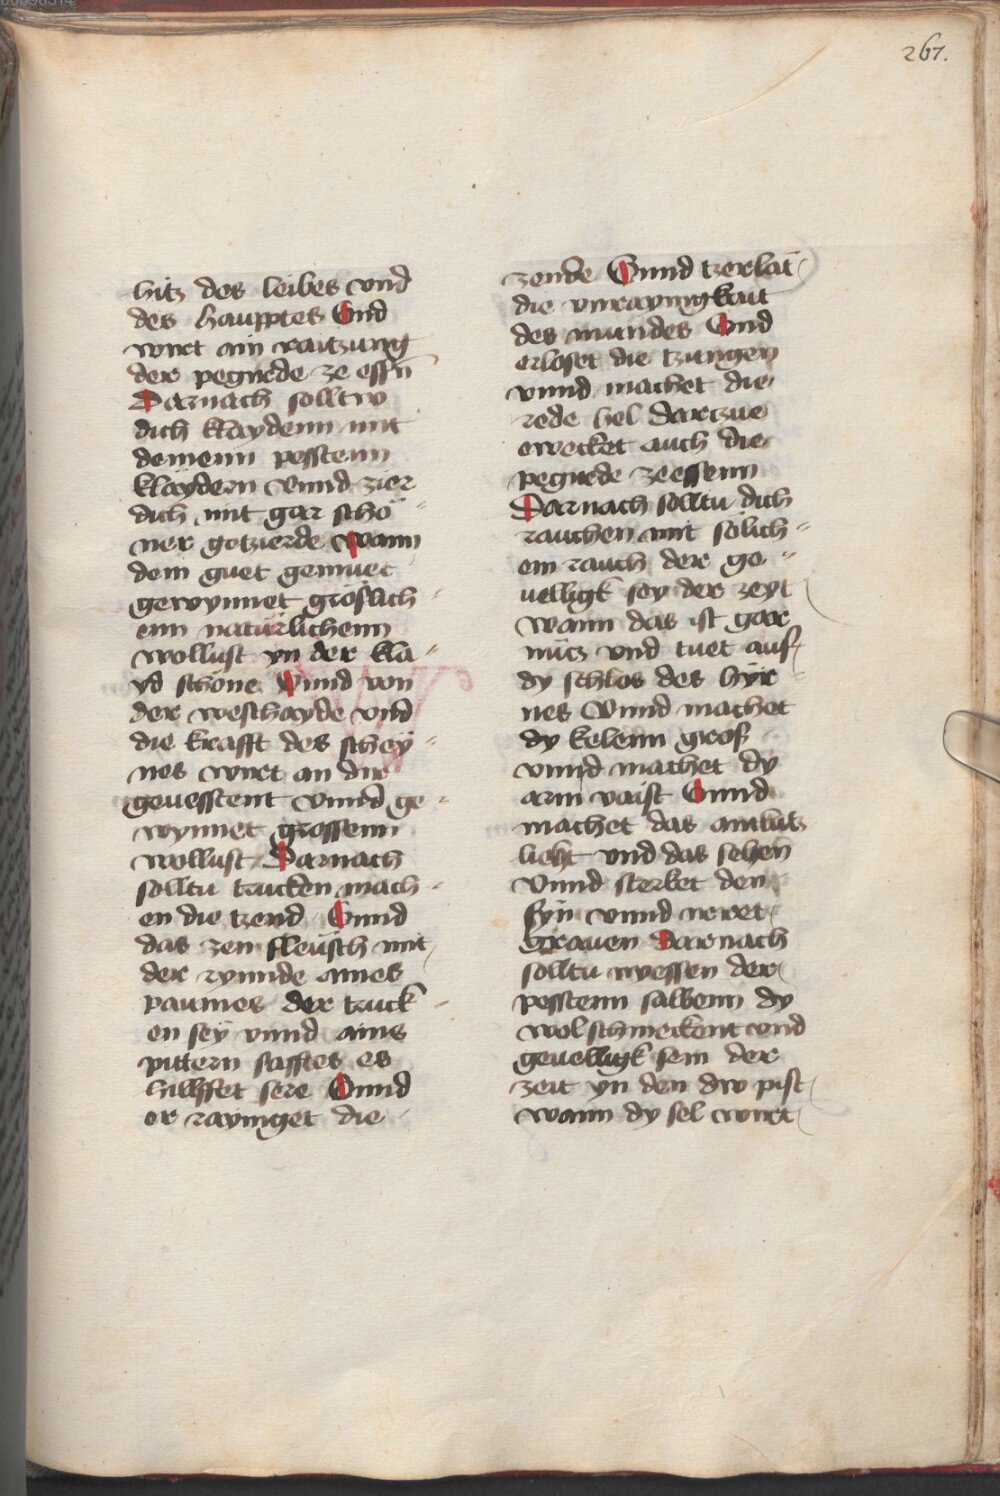 267.
hitz des leibes vnd
des haupptes Vnd
wirt ain raitzung
der pegirde ze essñ
Darnach solltw
dich klaydenn mit
deinenn pesstenn
klaydern Vnnd zier
dich mit gar schö-
ner getzierde Wann
dein guet gemuet
gewynnet gröslich-
enn naturlichenn
wollust yn der kla-
yd schöne Vnnd von
der weschayde vnd
die krafft des schey-
nes wirt an dir
geuesstent Vnnd ge-
wynnet grossenn
wollust Darnach
solltu trucken mach-
en die tzend Vnnd
das zen fleusch mit
der rynnde aines
paumes der truck-
en sey vnnd ains
pittern safftes es
hillffet sere Vnnd
er rayniget die
zende Vnnd tzerlat
die vnraynigkait
des mundes Vnd
erloset die tzungen
vnnd machet die
rede hel Dartzue
erwecket auch die
pegirde ze essenn
Darnach solltu dich
rauchen mit solich-
em rauch der ge-
uelligk sey der zeyt
wann das ist gar
nütz vnd tuet auf
dy schlos des hyr-
nes Vnnd machet
dy kelenn gros
vnnd machet dy
arm vaist Vnnd
machet das antlütz
lieht vnd das sehen
Vnnd sterket den
syn vnnd verret
Grauen Darnach
solltu nyessen der
pesstenn salbenn dy
wolschmeckent vnd
geuelligk sein der
zeit yn den dw pist
wann dy sel wirt